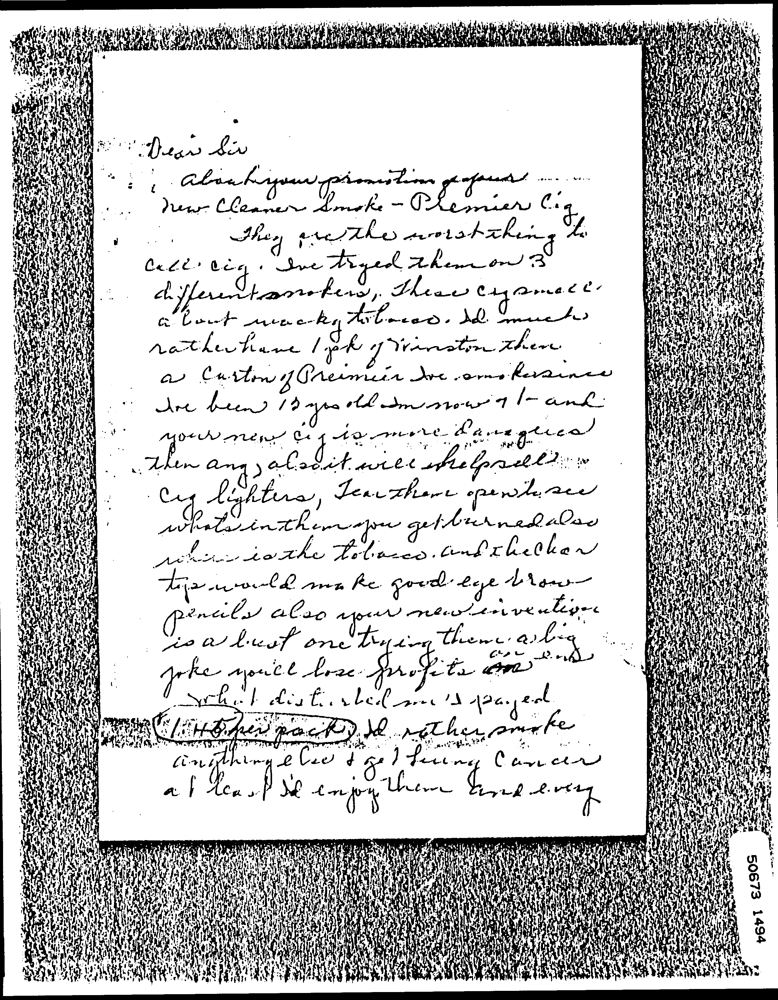 Dear Sir
About your promotion of your
new Cleaner Smoke - Premier Cig
They are the worst thing to
call cig. Ive tryed them on 3
different smokers, These cig smell
about wacky tobacco. Id much
rather have 1 pk of Winston then
a Carton of Preimier Ive smoker since
Ive been 15 yrs old Im now 71 - and
your new cig is more
then any, also it will help sell
Cig lighters, Tear them open to see
whats in them you get burned also
where is the tobacco. and the
tip would make good eye brow
pencils also your new invention
is a bust one trying them a big
joke you'll lose profits on end
What disturbed me I payed
1.45 per pack. Id rather smoke
anything else & get lung Cancer
at least I'd enjoy them and every
50673 1494